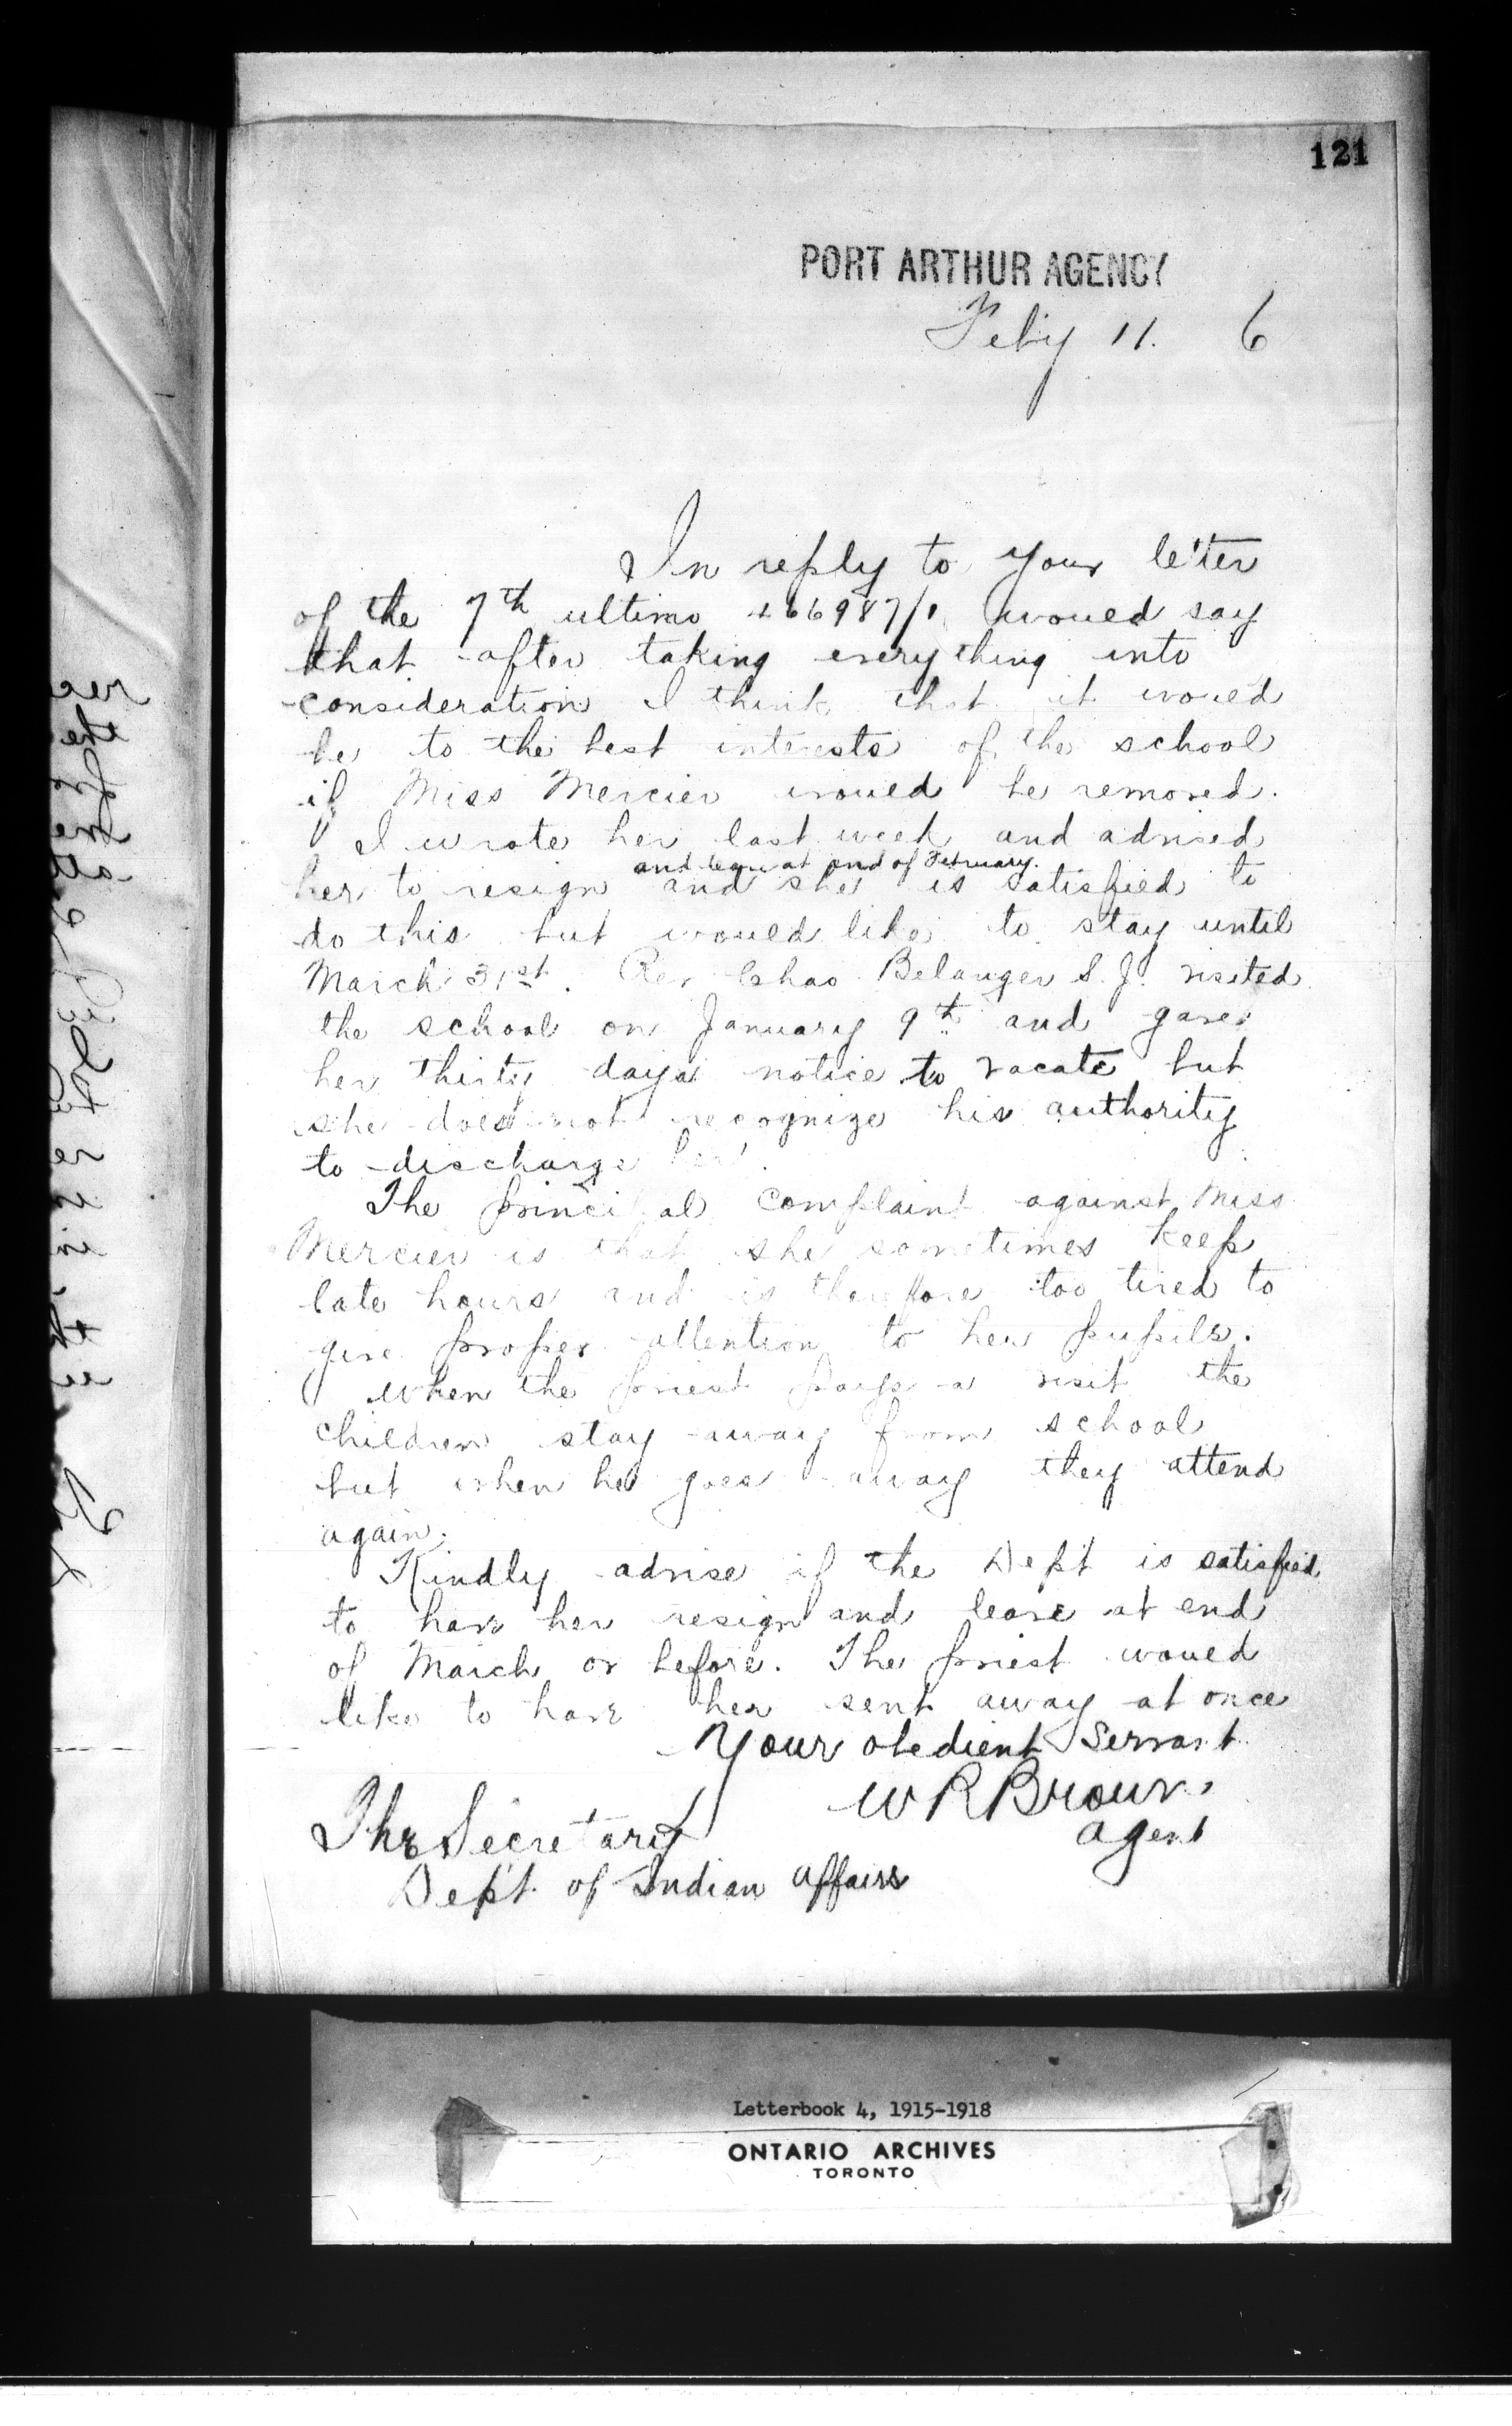 121
PORT ARTHUR AGENCY
Feby 11. 6
In reply to your letter
of the 7th ultimo 466987/1, would say
that after taking everything into
consideration I think that it would
be to the best interests of the school
if Miss Mercier would be removed.
I wrote her last week and advised
and leave at end of February.
her to resign and she is satisfied to
do this but would like to stay until
March 31st. Rev Chas Belanger S.J. visited
the school on January 9th and gave
her thirty days notice to vacate but
she does not recognize his authority
to discharge her.
The principal complaint against Miss
Mercier is that she sometimes keep
late hours and is therefore too tired to
give proper attention to her pupils.
When the priest pays a visit the
children stay away from school
but when he goes away they attend
again.
Kindly advise if the Dept is satisfied
to have her resign and leave at end
of March or before. The priest would
like to have her sent away at once
Your obedient Servant
W R Brown
Agent
The Secretary
Dept. of Indian Affairs
Letterbook 4, 1915-1918
ONTARIO ARCHIVES
TORONTO